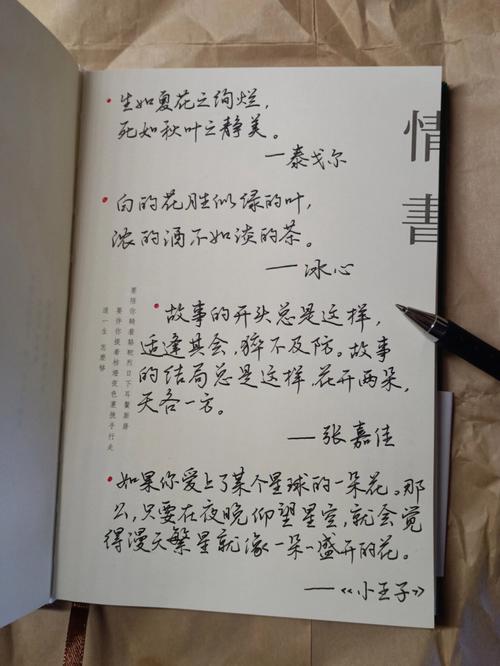 生如夏花之绚烂，
死如秋叶之静美。
—泰戈尔
白的花胜似绿的叶，
浓的酒不如淡的茶。
—冰心
故事的开头总是这样，
适逢其会，猝不及防。故事
的结局总是这样，花开两朵，
天各一方。
—张嘉佳
如果你爱上了某个星球的一朵花。那
么，只要在夜晚仰望星空，就会觉
得漫天繁星就像一朵盛开的花。
—《小王子》
情書
要陪你騎着駱駝烈日下耳鬢廝磨